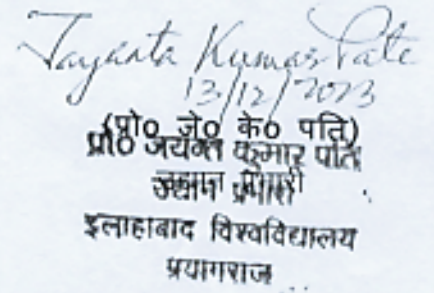 Jayanta Kumar Pati
13/12/2023
(प्रो० जे० के० पति)
प्रो० जयन्त कुमार पति
उद्यान प्रभारी
इलाहाबाद विश्वविद्यालय
प्रयागराज